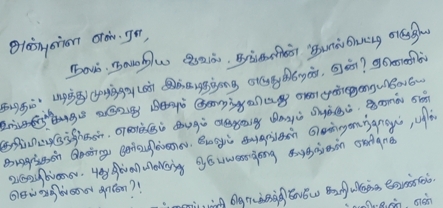 அன்புள்ள எஸ்.ரா,
நலம். நலமறிய ஆவல். தங்களின் 'தபால்பெட்டி எழுதிய
கடிதம்' படித்து முடித்தவுடன் இக்கடிதத்தை எழுதுகிறேன். ஏன்? ஏனெனில்
கடிதம் வருவது மிகவும் குறைந்துவிட்டது என முன்னுரையிலேயே
குறிப்பிட்டிருந்தீர்கள். எனக்கும் கடிதம் எழுதுவது மிகவும் பிடிக்கும். ஆனால் என்
கடிதங்கள் சென்று சேர்வதில்லை. மேலும் கடிதங்கள் சென்றடைந்தாலும், பதில்
வருவதில்லை. புது தில்லியிலிருந்து ஒரு பயணத்தை கடிதங்கள் எளிதாக
செய்வதில்லை தானே?!
தொடக்கத்திலேயே கூறியிருக்க வேண்டும்.
என்